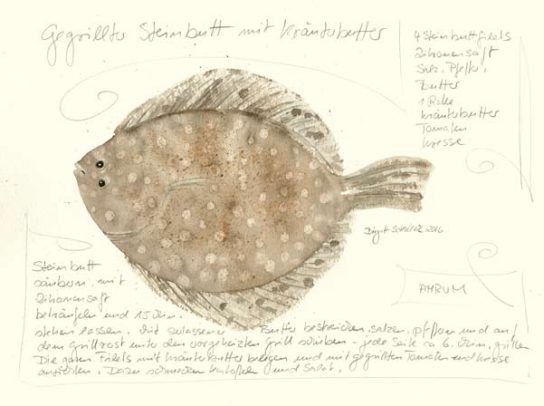 Gegrillter Steinbutt mit Kräuterbutter
4 Steinbuttfilets
Zitronensaft
Salz, Pfeffer,
Butter
1 Rolle
Kräuterbutter
Tomaten
Kresse
2016
AMRUM
Steinbutt
säubern, mit
Zitronensaft
beträufeln und 15 Min.
stehen lassen. Mit zerlassener Butter bestreichen, salzen, pfeffern und auf
dem Grillrost unter den vorgeheizten Grill schieben - jede Seite ca 6. Min. grillen
Die garen Filets mit Kräuterbutter belegen und mit gegrillten Tomaten und Kresse
anrichten. Dazu schmecken Kartoffeln und Salat.